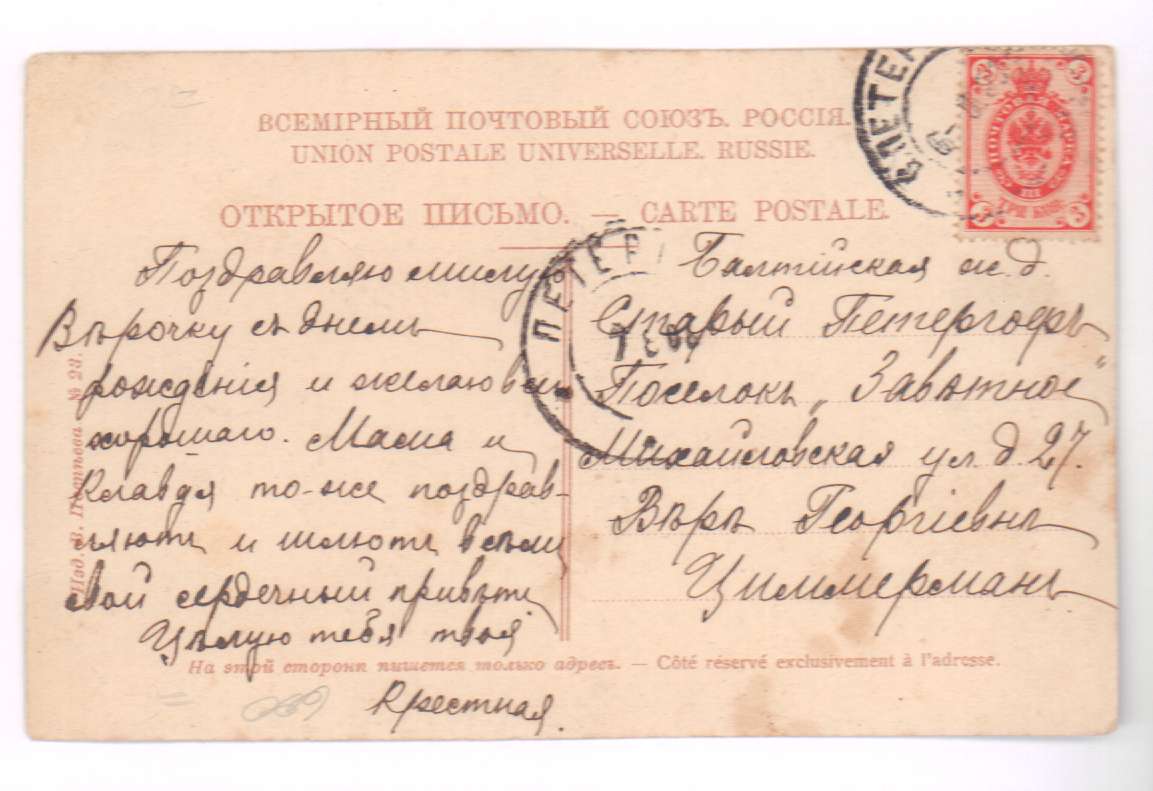 ВСЕМІРНЫЙ ПОЧТОВЫЙ СОЮЗЪ. РОССІЯ.
UNION POSTALE UNIVERSELLE. RUSSIE.
ОТКРЫТОЕ ПИСЬМО. — CARTE POSTALE.
Поздравляю милую
Вѣрочку съ днемъ
рожденія и желаю всего
хорошаго. Мама и
Клавдя то-же поздрав-
ляютъ и шлютъ всѣмъ
свой сердечный привѣтъ
Цѣлую тебя твоя
Крестная.
Балтійская ж. д.
Старый Петергофъ
Поселокъ „Завѣтное"
Михайловская ул. д. 27.
Вѣрѣ Георгіевнѣ
Циммерманъ
На этой сторонѣ пишется только адресъ. — Côté réservé exclusivement à l'adresse.
Изд. В. № 23.
ПОЧТОВАЯ МАРКА
ТРИ КОП.
3 3
3 3
С ПЕТЕР
ПЕТЕРГ